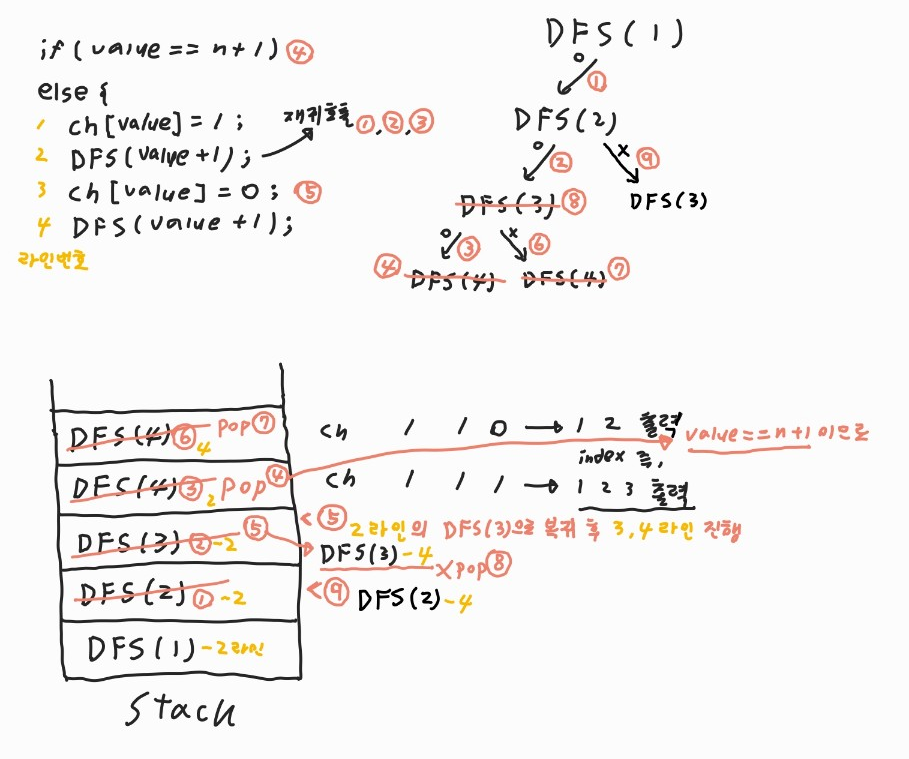 if(value == n+1) ④
else {
1 ch[value] = 1;
재귀호출 ①,②,③
2 DFS(value+1);
3 ch[value] = 0; ⑤
4 DFS(value+1);
라인번호
DFS(1)
o ①
DFS(2)
o ② x ⑨
DFS(3) ⑧ DFS(3)
o ③ x ⑥
④ DFS(4) DFS(4) ⑦
DFS(4) ⑥ 4 pop ⑦
ch 1 1 0 → 1 2 출력
value==n+1 이므로
DFS(4) ③ 2 pop ④
index 즉,
ch 1 1 1 → 1 2 3 출력
DFS(3) ②-2 ⑤
<⑤ 2라인의 DFS(3)으로 복귀 후 3,4라인 진행
DFS(3)-4 X pop ⑧
DFS(2) ①-2
<⑨ DFS(2)-4
DFS(1)-2라인
Stack